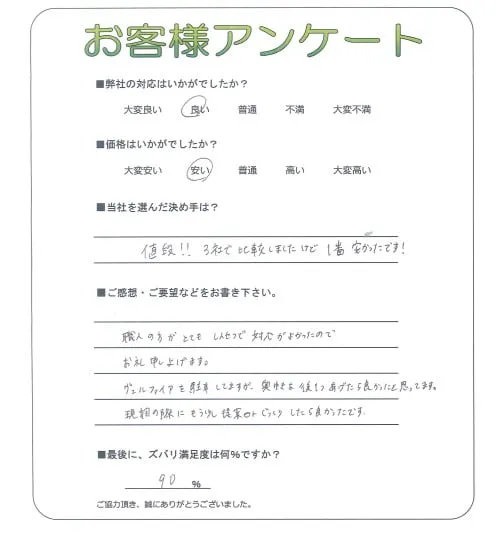 お客様アンケート
■弊社の対応はいかがでしたか？
大変良い 良い 普通 不満 大変不満
■価格はいかがでしたか？
大変安い 安い 普通 高い 大変高い
■当社を選んだ決め手は？
値段!! 3社で比較しましたけど 1番 安かったです!
■ご感想・ご要望などをお書き下さい。
職人の方がとても しんせつで 対応がよかったので
お礼申し上げます。
ヴェルファイアを駐車してますが、奥ゆきを後 あげたら良かったと思ってます。
現調の際にもう少し提案 じっくり したら良かったです。
■最後に、ズバリ満足度は何%ですか？
90 %
ご協力頂き、誠にありがとうございました。